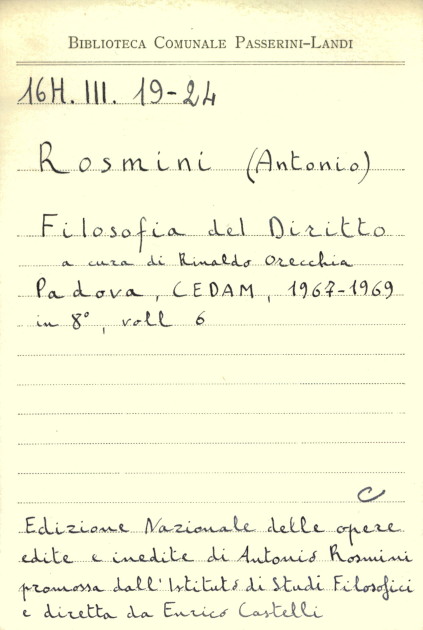 BIBLIOTECA COMUNALE PASSERINI-LANDI
16H. III. 19-24
Rosmini (Antonio)
Filosofia del Diritto
a cura di Rinaldo Orecchia
Padova, CEDAM, 1967-1969
in 8°, voll 6
C
Edizione Nazionale delle opere
edite e inedite di Antonio Rosmini
promossa dall'Istituto di Studi Filosofici
e diretta da Enrico Castelli